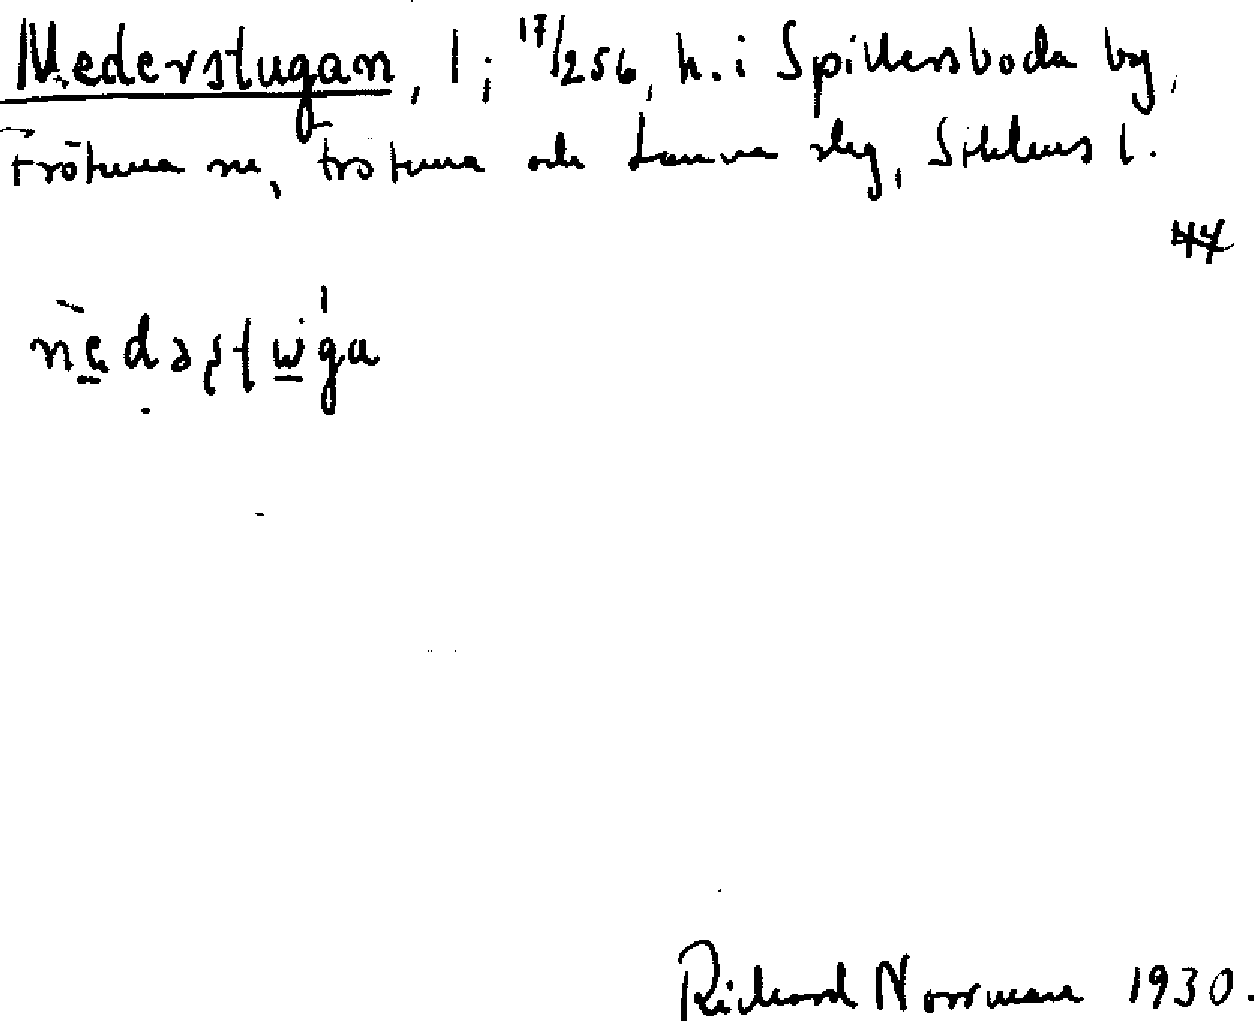 Nederstugan, 1; 17/256, h. i Spillersboda by,
Frötuna sn, Frötuna och Länna slg, Sthlms l.
47
nedəʂʈɯga
Richard Norrman 1930.